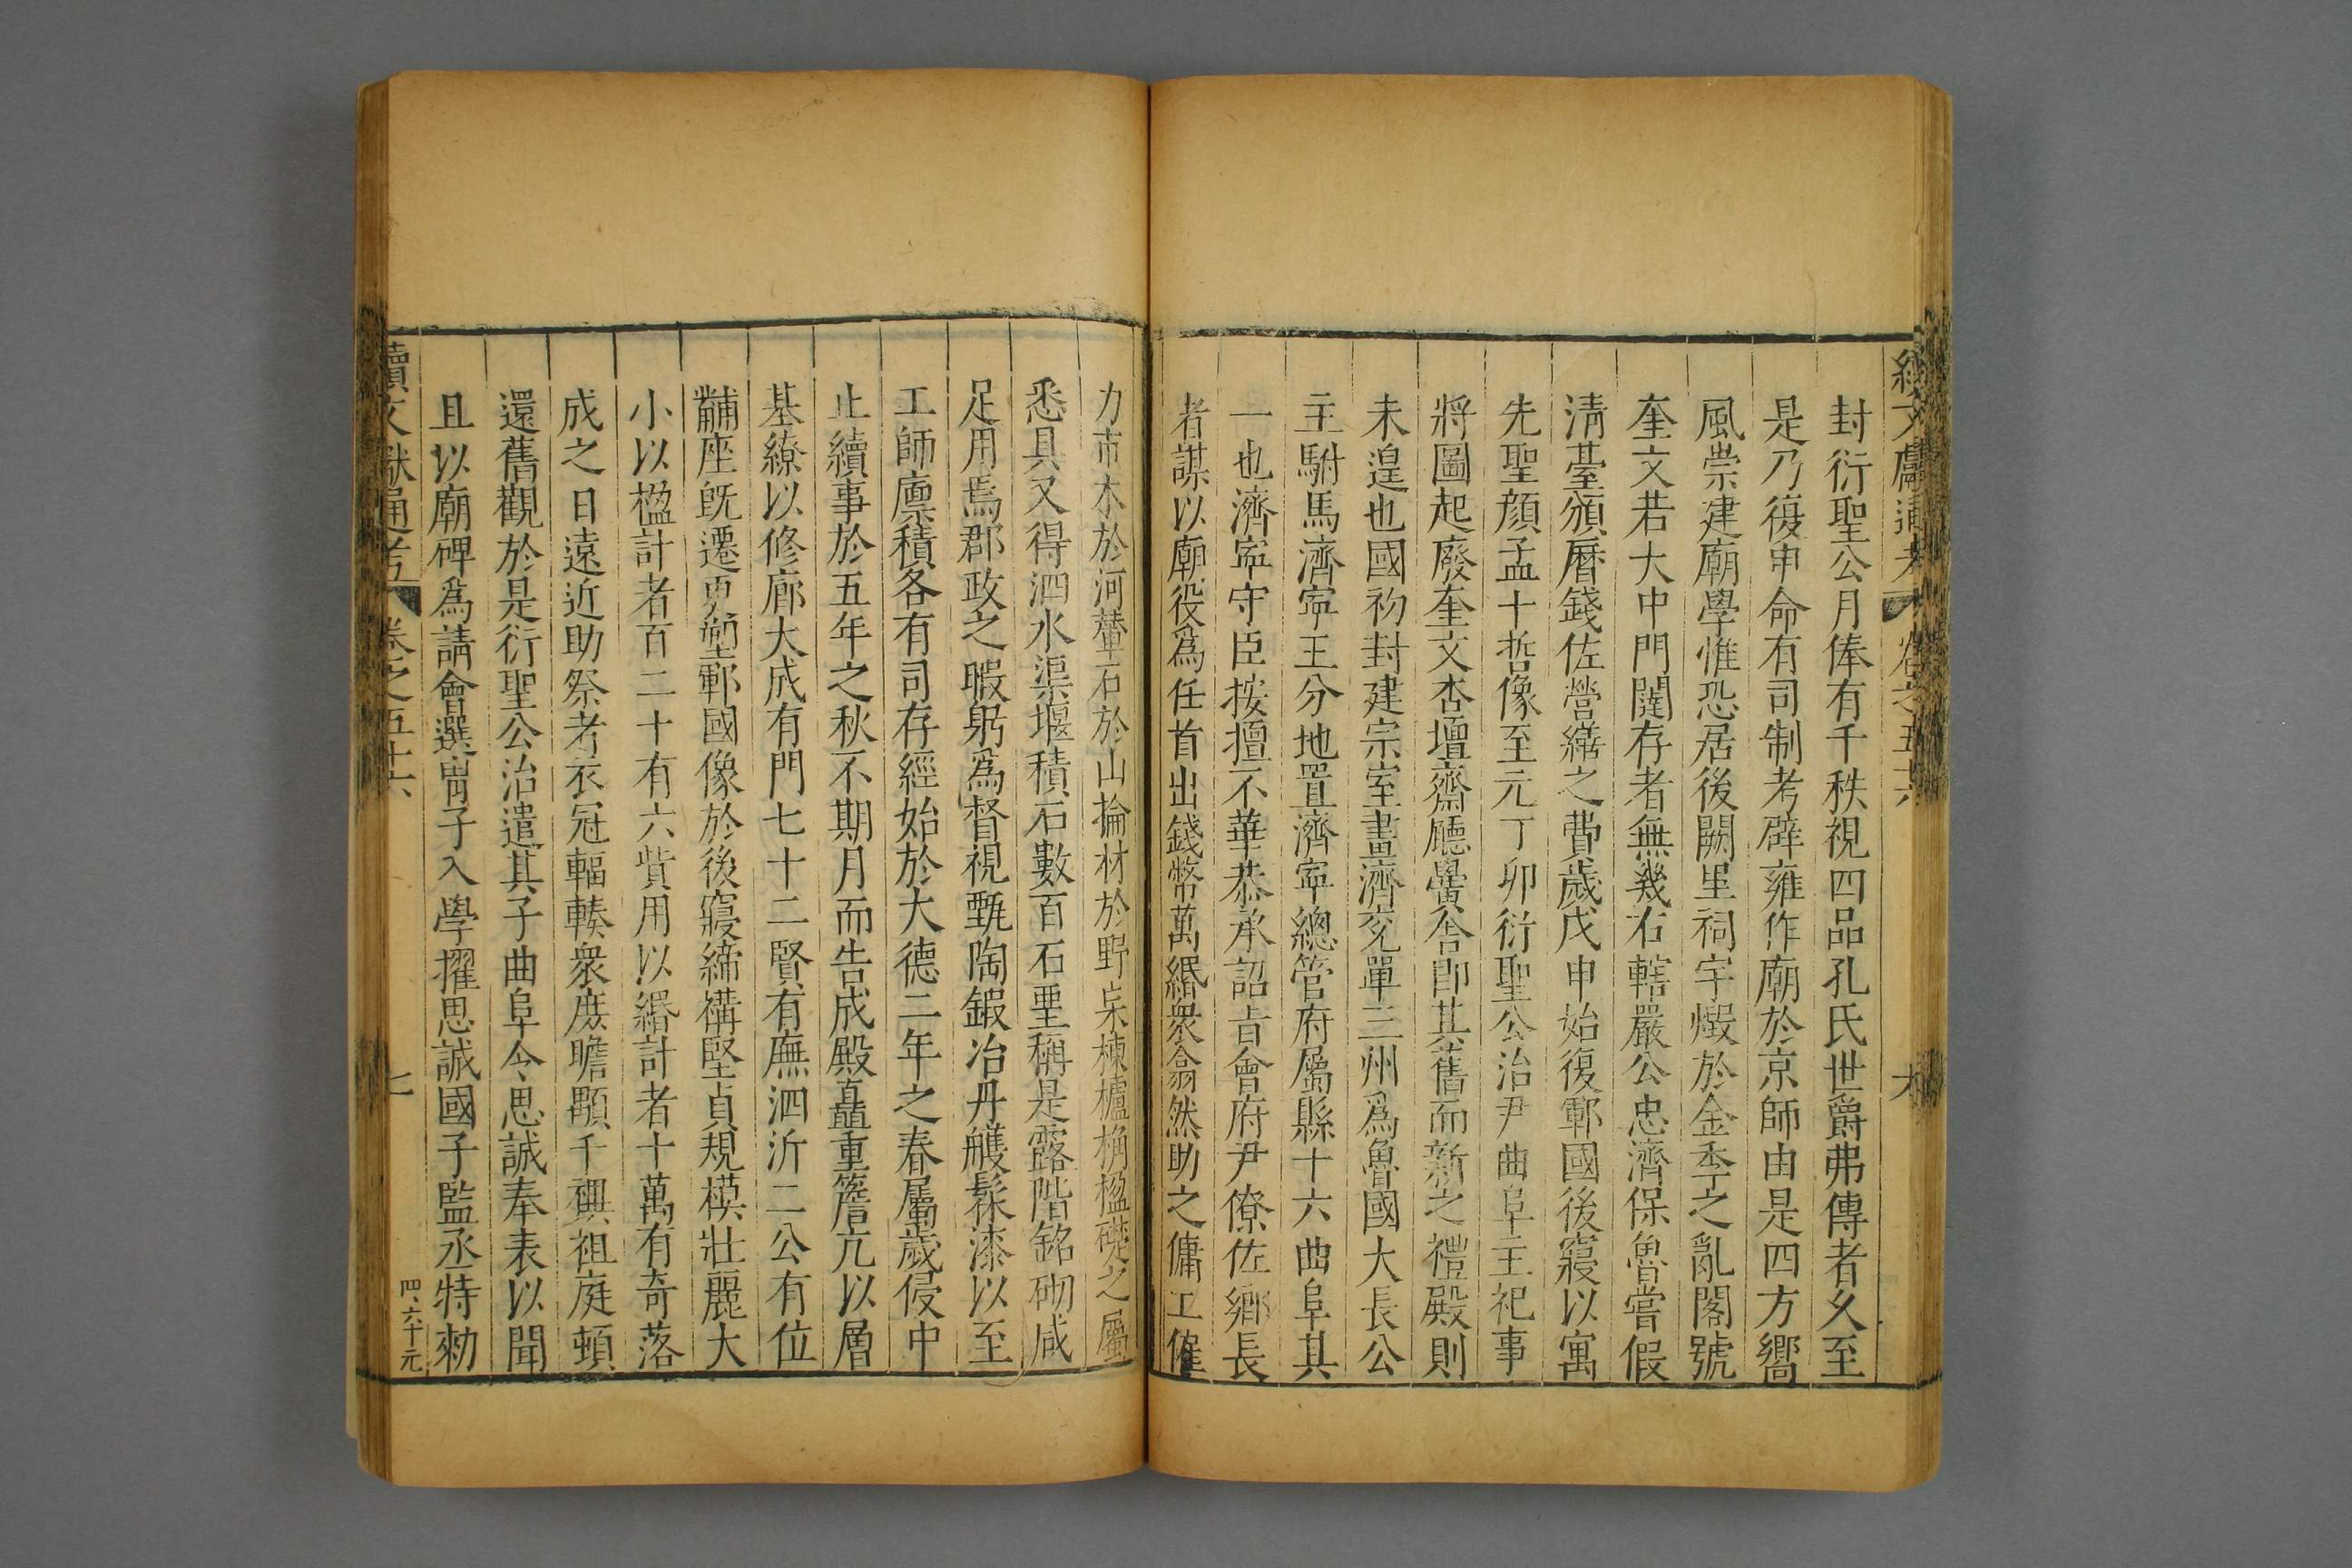 續文獻通考 卷之五十六 六
封衍聖公月俸有千秩視四品孔氏世爵弗傳者久至
是乃復申命有司制考辟雍作廟於京師由是四方嚮
風崇建廟學惟恐居後闕里祠宇燬於金季之亂閣號
奎文若大中門闥存者無幾右轄嚴公忠濟保魯嘗假
清臺頒曆錢佐營繕之費歲戊申始復鄆國後寢以寓
先聖顏孟十哲像至元丁卯衍聖公治尹曲阜主祀事
將圖起廢奎文杏壇齋廳黌舍即其舊而新之禮殿則
未遑也國初封建宗室畫濟兗單三州爲魯國大長公
主駙馬濟寧王分地置濟寧總管府屬縣十六曲阜其
一也濟寧守臣按擅不華恭承詔旨會府尹僚佐鄉長
者謀以廟役爲任首出錢幣萬緡衆翕然助之傭工僦
力市木於河輦石於山掄材於野杗棟櫨桷楹礎之屬
悉具又得泗水渠堰積石數百石堊稱是露階銘砌咸
足用焉郡政之暇躬爲督視甄陶鍜冶丹雘髹漆以至
工師廩積各有司存經始於大德二年之春屬歲侵中
止續事於五年之秋不期月而告成殿矗重簷亢以層
基繚以修廊大成有門七十二賢有廡泗沂二公有位
黼座旣遷更塑鄆國像於後寢締構堅貞規模壯麗大
小以楹計者百二十有六貲用以緡計者十萬有奇落
成之日遠近助祭者衣冠輻輳衆庶瞻顒千禩祖庭頓
還舊觀於是衍聖公治遣其子曲阜令思誠奉表以聞
且以廟碑爲請會選胄子入學擢思誠國子監丞特勑
續文獻通考 卷之五十六 七
四、六十元